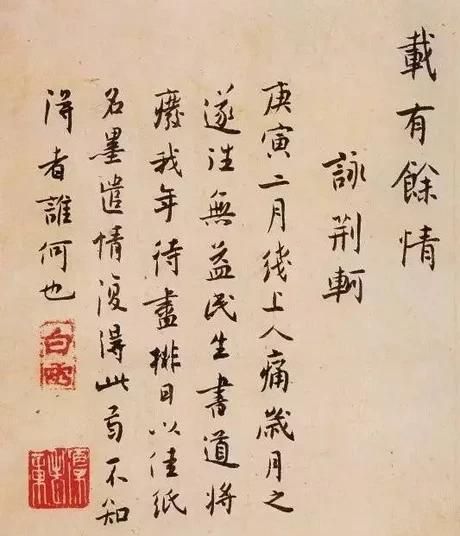 載有餘情
詠荊軻
庚寅二月綫上人痛歲月之
遂往無益民生書道將
廢我年待盡排日以佳紙
名墨遣情復得此首不知
得者誰何也
白雲